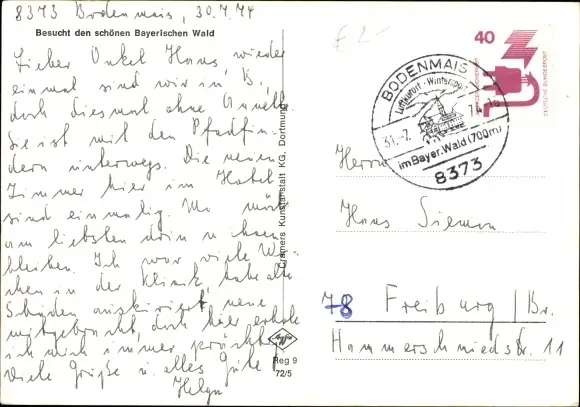 8373 Bodenmais, 30.7.74
Besucht den schönen Bayerischen Wald
Lieber Onkel Hans, wieder
einmal sind wir in B.,
doch diesmal ohne Annette
Sie ist mit den Pfadfin-
dern unterwegs. Die neuen
Zimmer hier im Hotel
sind einmalig. Man möcht
am liebsten drin wohnen
bleiben. Ich war viele Wo-
chen in der Klinik, habe alte
Schäden auskuriert, neue
mitgebracht, doch hier erhole
ich mich immer prächtig
Viele Grüße u. alles Gute!
Helga
Cramers Kunstanstalt KG, Dortmund
Reg 9
72/5
£ 2-
BODENMAIS
Luftkurort - Wintersport
31.-7. 74-18
im Bayer. Wald (700m)
8373
40
DEUTSCHE BUNDESPOST
Herrn
Hans Siemon
78 Freiburg/Br.
Hammerschmiedstr. 11